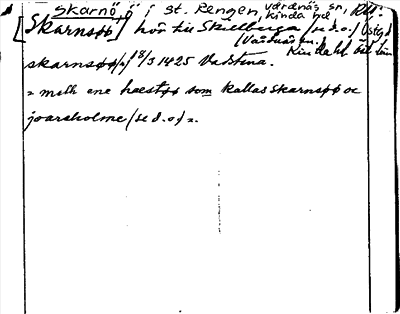 Skarnö, ö i St. Rengen, Värdnäs sn, Kinda hd
[Skarnsøø] hör till Skillberga (se d.o.) Östgöt
(Vårdnäs sn.) Kinda hd
skarnsøø/ 18/3 1425 Vadstena.
= mz ene haestøø som kallas skarnsøø oc
joarsholme (se d.o) =.